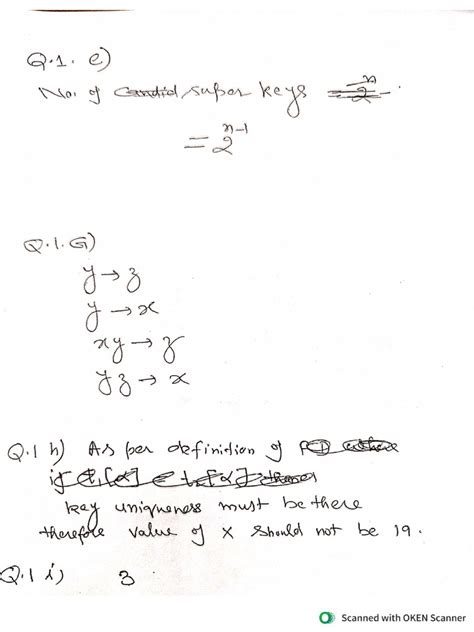 Q.1. e)
No. of Candid super keys = 2^n
= 2^n-1
Q.1.G)
y → z
y → x
xy → z
yz → x
Q.1 h) As per definition of
key uniqueness must be there
therefore value of X should not be 19.
Q.1 i) 3
Scanned with OKEN Scanner